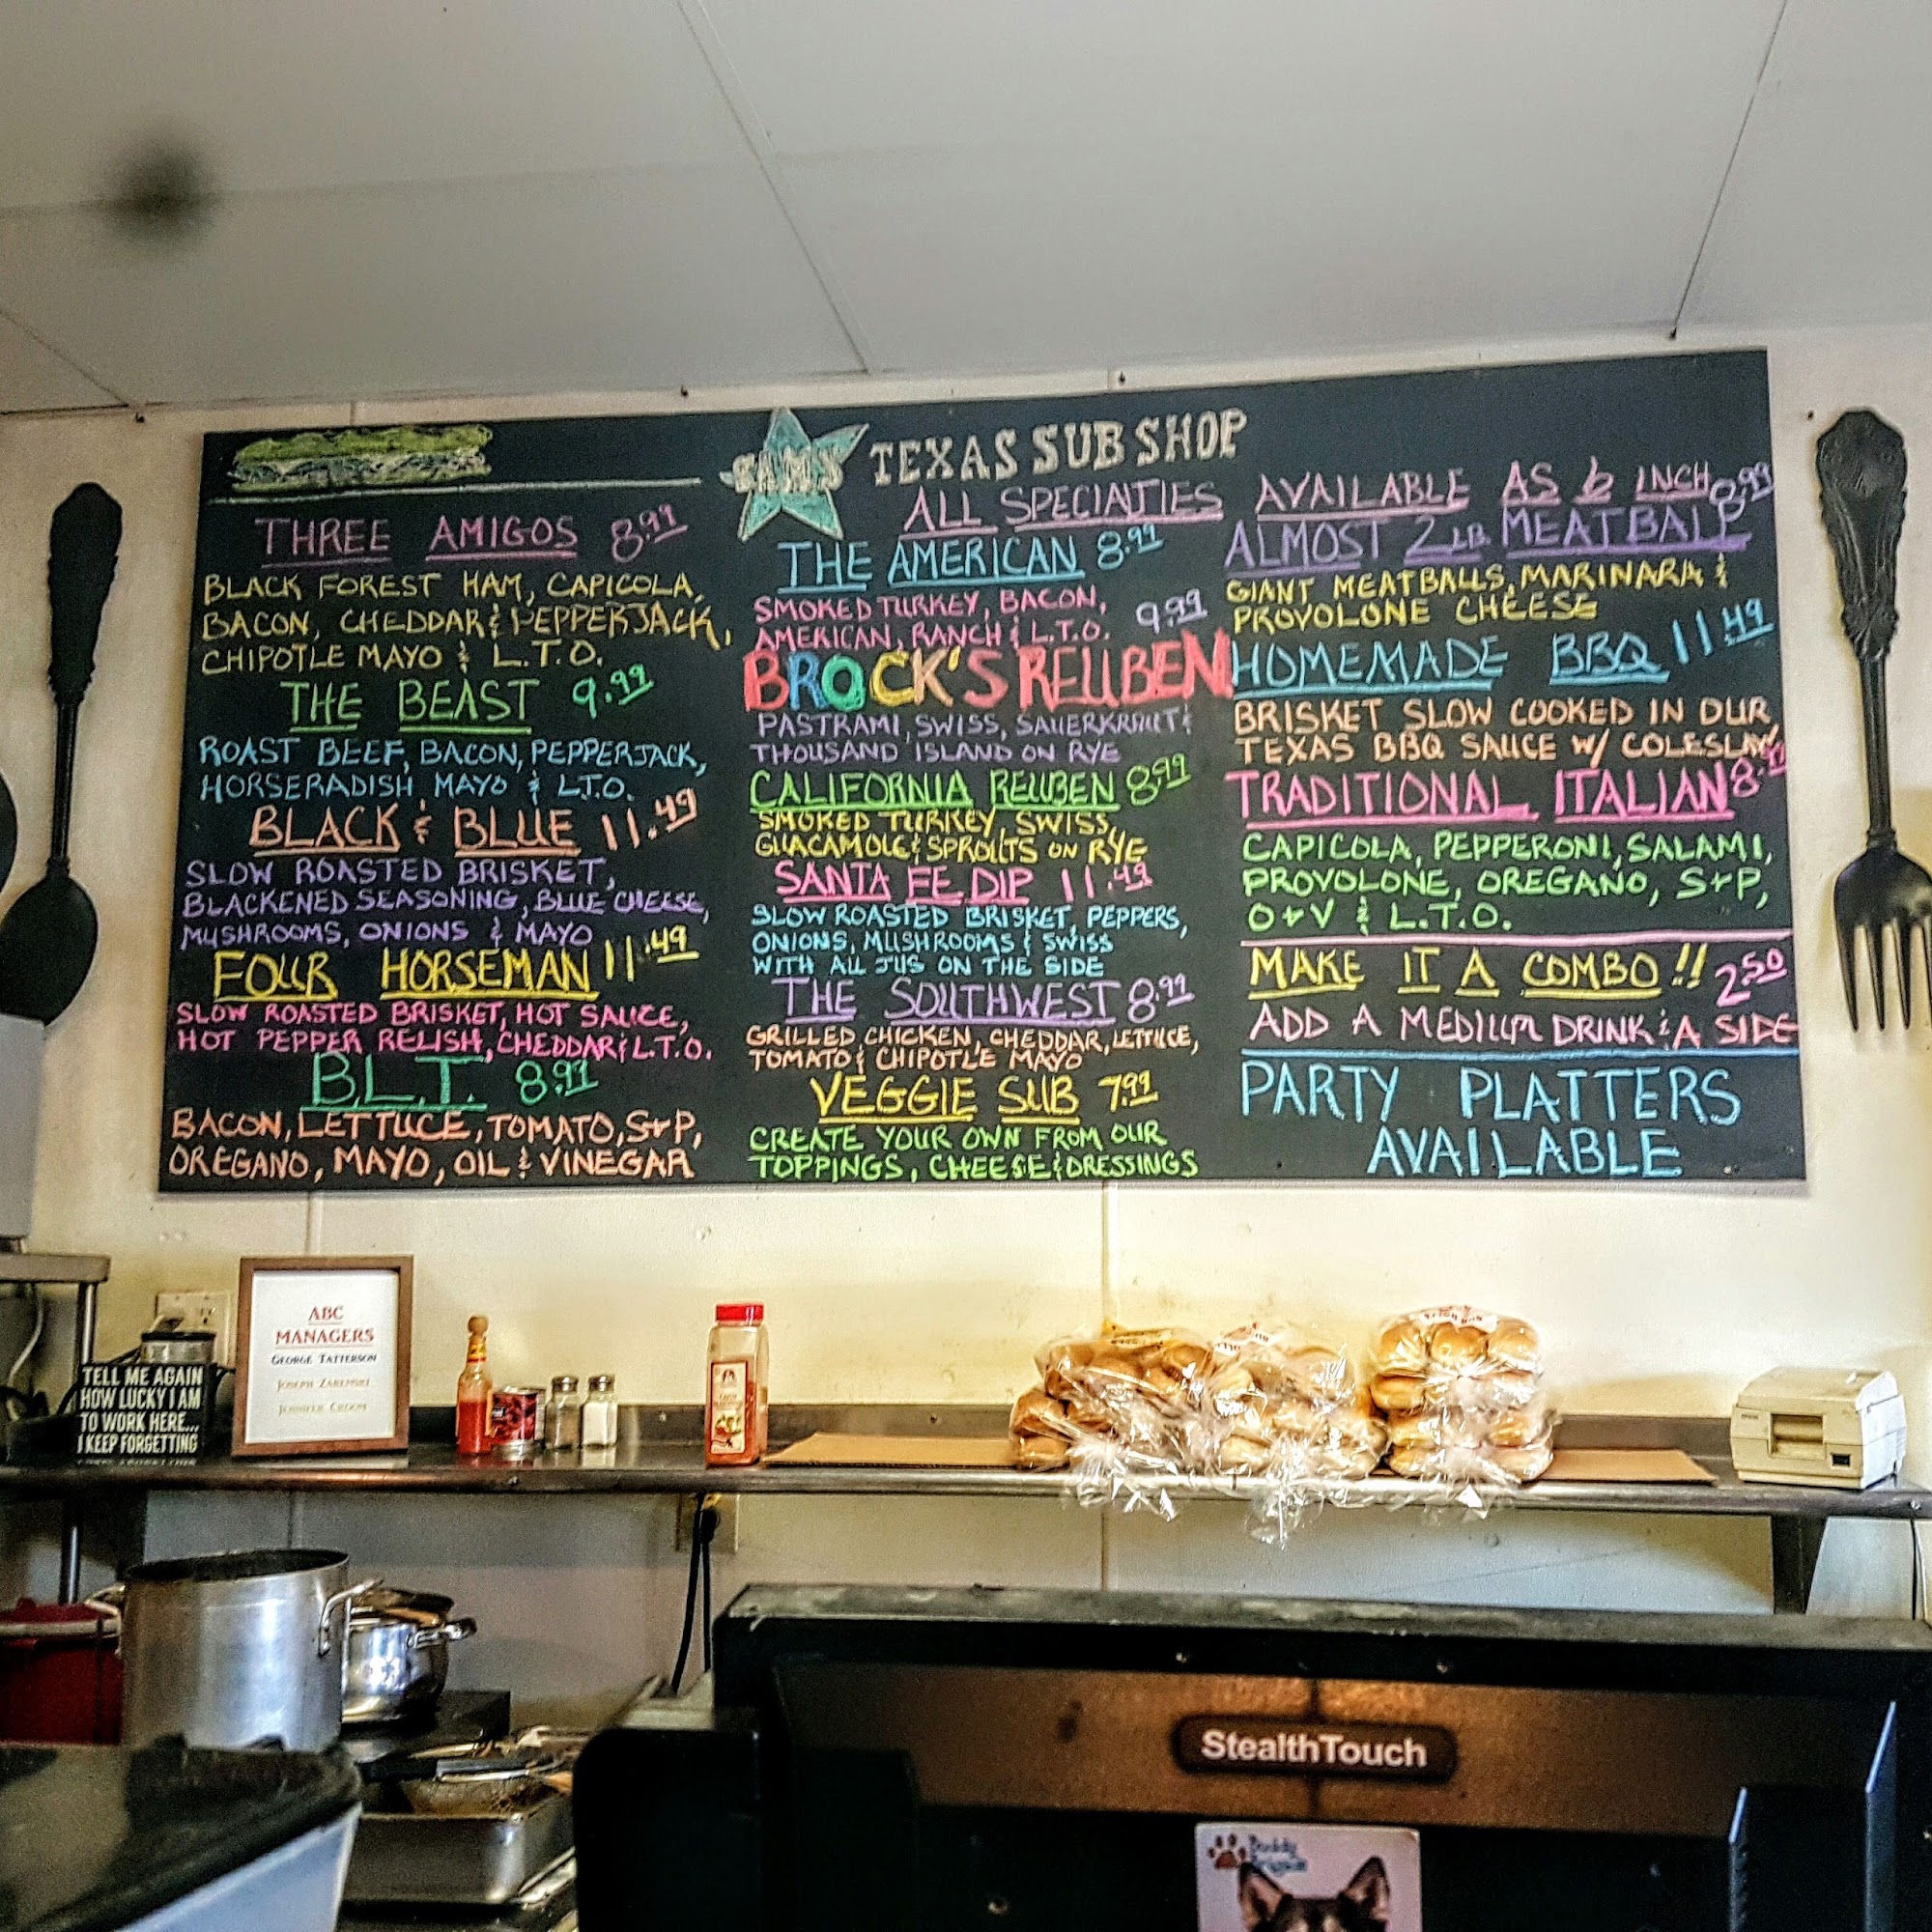 SAM'S TEXAS SUB SHOP
ALL SPECIALTIES AVAILABLE AS 6 INCH
THREE AMIGOS 8.99
BLACK FOREST HAM, CAPICOLA,
BACON, CHEDDAR & PEPPERJACK,
CHIPOTLE MAYO & L.T.O.
THE BEAST 9.99
ROAST BEEF, BACON, PEPPERJACK,
HORSERADISH MAYO & L.T.O.
BLACK & BLUE 11.49
SLOW ROASTED BRISKET,
BLACKENED SEASONING, BLUE CHEESE,
MUSHROOMS, ONIONS & MAYO
FOUR HORSEMAN 11.49
SLOW ROASTED BRISKET, HOT SAUCE,
HOT PEPPER RELISH, CHEDDAR & L.T.O.
B.L.T. 8.99
BACON, LETTUCE, TOMATO, S+P,
OREGANO, MAYO, OIL & VINEGAR
THE AMERICAN 8.99
SMOKED TURKEY, BACON,
AMERICAN, RANCH & L.T.O.
BROCK'S REUBEN 9.99
PASTRAMI, SWISS, SAUERKRAUT &
THOUSAND ISLAND ON RYE
CALIFORNIA REUBEN 8.99
SMOKED TURKEY, SWISS,
GUACAMOLE & SPROUTS ON RYE
SANTA FE DIP 11.49
SLOW ROASTED BRISKET, PEPPERS,
ONIONS, MUSHROOMS & SWISS
WITH ALL JUS ON THE SIDE
THE SOUTHWEST 8.99
GRILLED CHICKEN, CHEDDAR, LETTUCE,
TOMATO & CHIPOTLE MAYO
VEGGIE SUB 7.99
CREATE YOUR OWN FROM OUR
TOPPINGS, CHEESE & DRESSINGS
ALMOST 2 LB. MEATBALL 8.99
GIANT MEATBALLS, MARINARA &
PROVOLONE CHEESE
HOMEMADE BBQ 11.49
BRISKET SLOW COOKED IN OUR
TEXAS BBQ SAUCE W/ COLESLAW
TRADITIONAL ITALIAN 8.99
CAPICOLA, PEPPERONI, SALAMI,
PROVOLONE, OREGANO, S+P,
O+V & L.T.O.
MAKE IT A COMBO!! 2.50
ADD A MEDIUM DRINK & A SIDE
PARTY PLATTERS
AVAILABLE
TELL ME AGAIN
HOW LUCKY I AM
TO WORK HERE...
I KEEP FORGETTING
ABC
MANAGERS
GEORGE TATTERSON
JOSEPH ZAREMSKI
JENNIFER CROOM
StealthTouch
Buddy